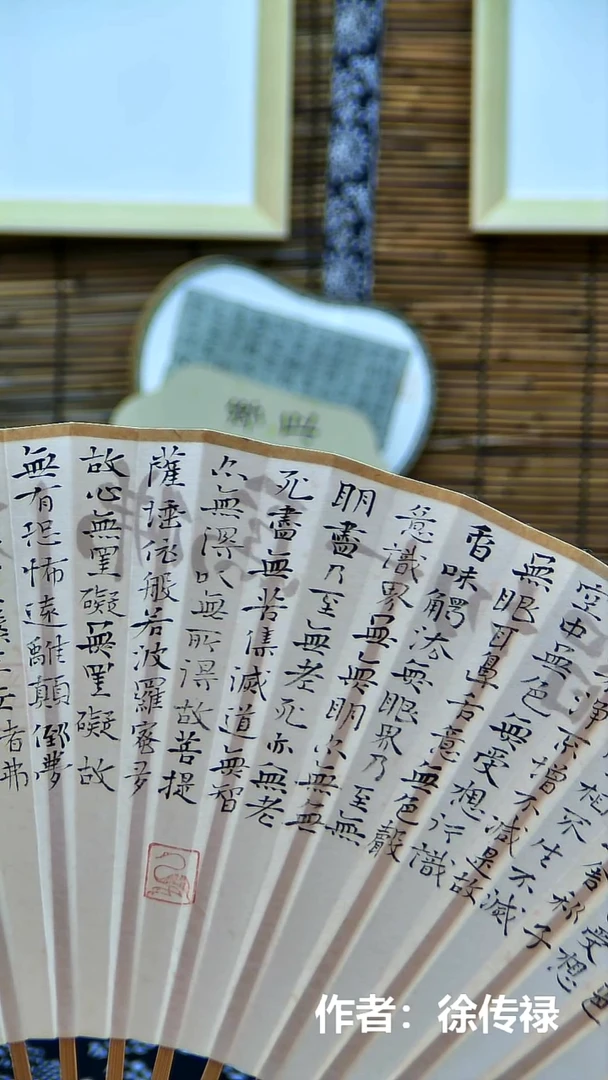 色
受想
舍利子
相不生不滅
淨不增不減是故
空中無色無受想行識
無眼耳鼻舌意無色聲
香味觸法無眼界乃至無
意識界無無明亦無無
明盡乃至無老死亦無老
死盡無苦集滅道無智
亦無得以無所得故菩提
薩埵依般若波羅蜜多
故心無罣礙無罣礙故
無有恐怖遠離顛倒夢
作者：徐传禄